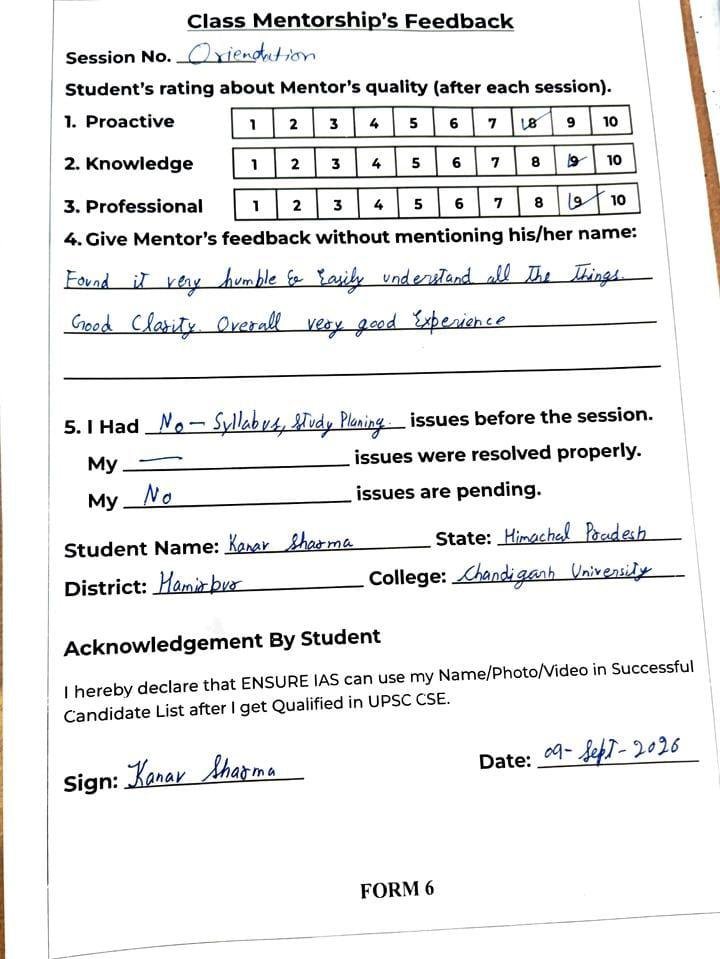 Class Mentorship's Feedback
Session No. Oriendation
Student's rating about Mentor's quality (after each session).
1. Proactive 1 2 3 4 5 6 7 8 9 10
2. Knowledge 1 2 3 4 5 6 7 8 9 10
3. Professional 1 2 3 4 5 6 7 8 9 10
4. Give Mentor's feedback without mentioning his/her name:
Found it very humble & Easily understand all The Things.
Good Clarity. Overall very good Experience
5. I Had No - Syllabus, Study Planing. issues before the session.
My — issues were resolved properly.
My No issues are pending.
Student Name: Kanav Sharma State: Himachal Pradesh
District: Hamirpur College: Chandigarh University
Acknowledgement By Student
I hereby declare that ENSURE IAS can use my Name/Photo/Video in Successful
Candidate List after I get Qualified in UPSC CSE.
Sign: Kanav Sharma Date: 09-Sept-2026
FORM 6